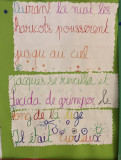 Durant la nuit les
haricots poussèrent
jusqu'au ciel
Jacques se réveilla et
décida de grimper le
long de la tige
Il était curieux